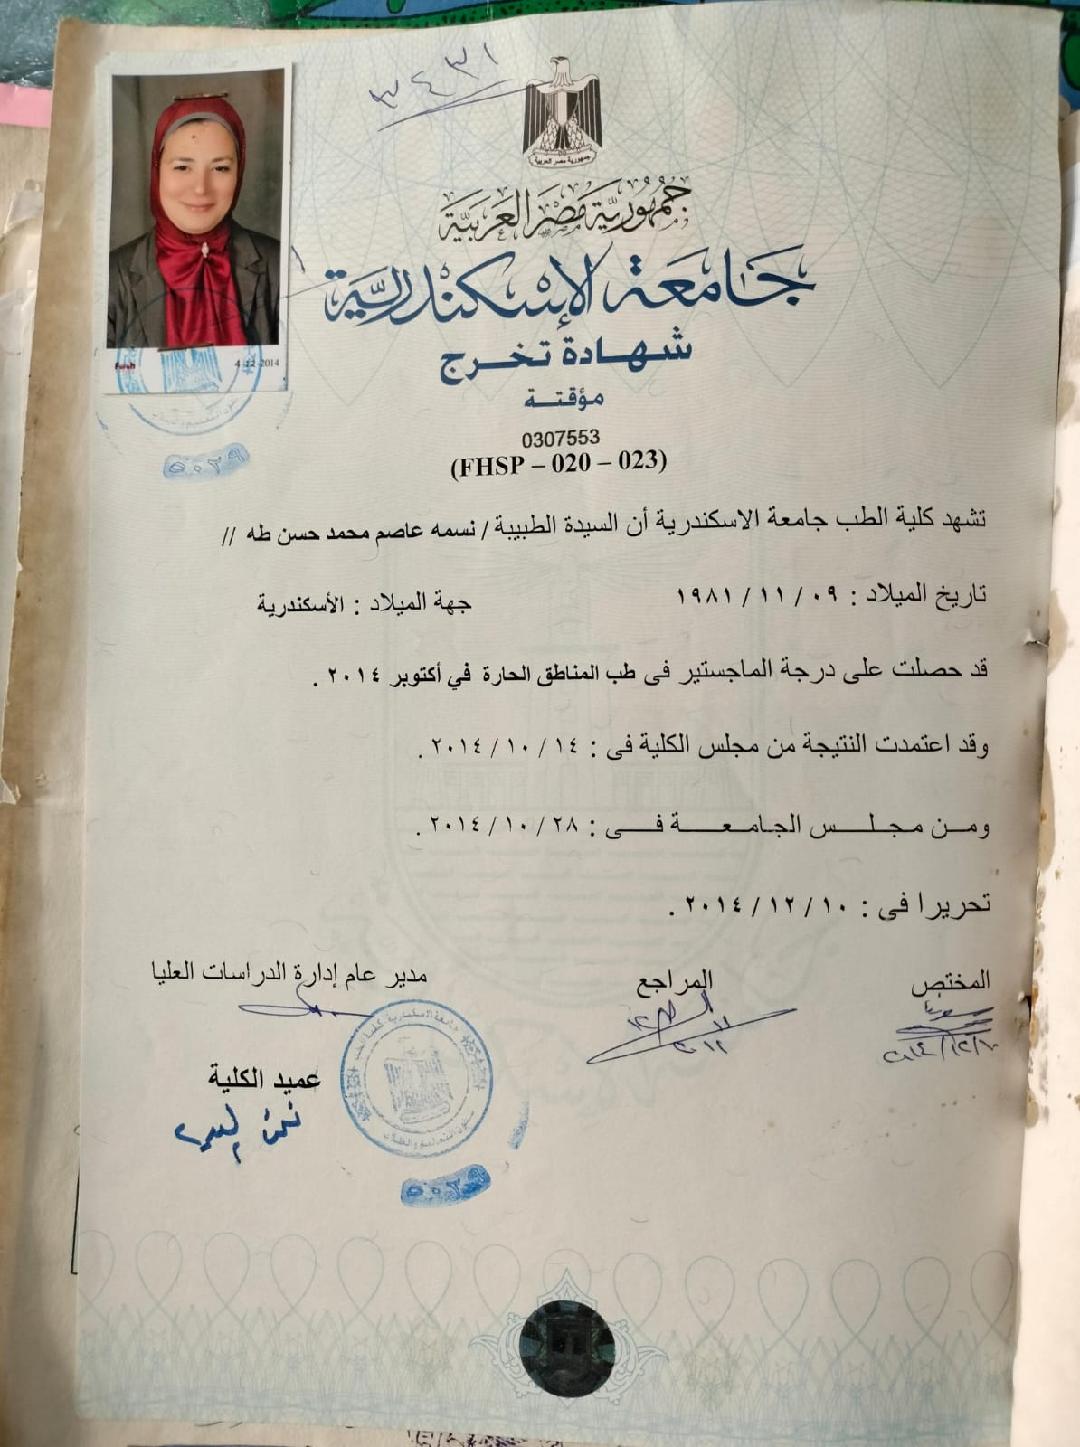 ٣٤٣١
جمهورية مصر العربية
جمهورية مصر العربية
جامعة الإسكندرية
شهادة تخرج
مؤقتة
4-12-2014
0307553
(FHSP – 020 – 023)
٥٠٢٩
تشهد كلية الطب جامعة الاسكندرية أن السيدة الطبيبة / نسمه عاصم محمد حسن طه //
تاريخ الميلاد : ٠٩ / ١١ / ١٩٨١ جهة الميلاد : الأسكندرية
قد حصلت على درجة الماجستير فى طب المناطق الحارة في أكتوبر ٢٠١٤ .
وقد اعتمدت النتيجة من مجلس الكلية فى : ١٤ / ١٠ / ٢٠١٤ .
ومن مجلس الجامعة فى : ٢٨ / ١٠ / ٢٠١٤ .
تحريرا فى : ١٠ / ١٢ / ٢٠١٤ .
المختص المراجع مدير عام إدارة الدراسات العليا
٢٠١٤/١٢/١٠
عميد الكلية